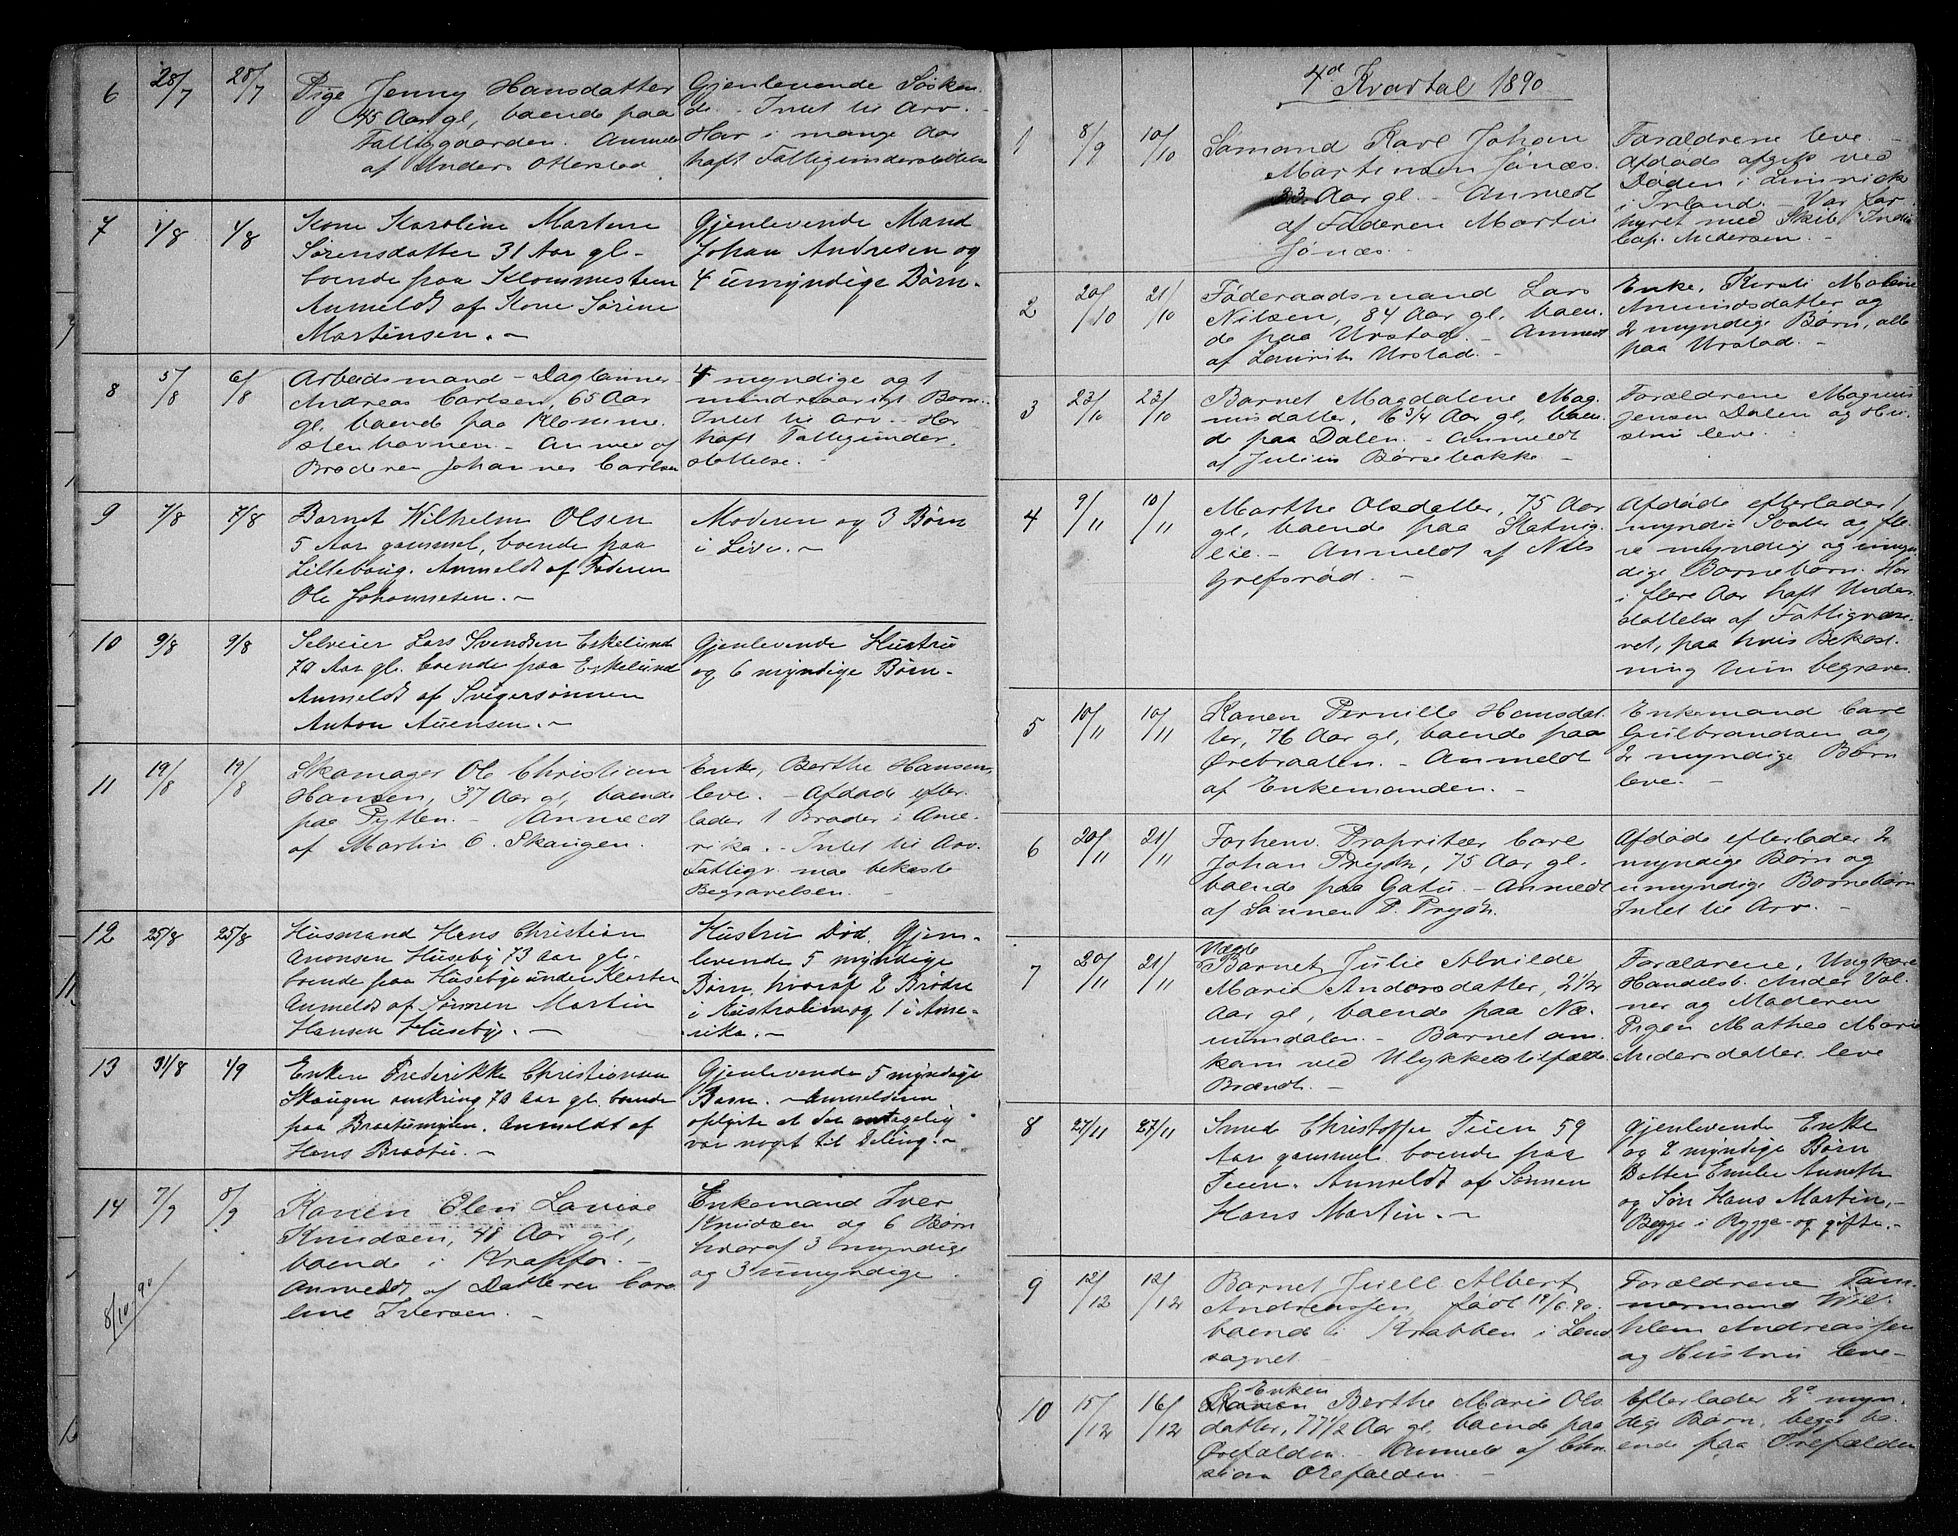 6 28/7 28/7 Pige Jenny Hansdatter
45 Aar gl, boende paa
Fattiggaarden. Anmeldt
af Anders Otterstad
Gjenlevende Søsken-
de. - Intet til Arv. -
Har i mange Aar
haft Fattigunderstøttelse
7 1/8 4/8 Kone Karoline Martine
Sørensdatter 31 Aar gl.
boende paa Klommesteen
Anmeldt af Kone Sørine
Martinsen. -
Gjenlevende Mand
Johan Andresen og
4 umyndige Børn.
8 5/8 6/8 Arbeidsmand - Daglønner
Andreas Carlsen, 65 Aar
gl. boende paa Klomme-
stenhavnen. - Anme af
Broderen Johannes Carlsen
4 myndige og 1
mindreaarigt Barn.
Intet til Arv. - Har
haft Fattigunder-
støttelse. -
9 7/8 7/8 Barnet Wilhelm Olsen
5 Aar gammel, boende paa
Lilleborg. Anmeldt af Faderen
Ole Johannesen. -
Moderen og 3 Børn
i Live. -
10 9/8 9/8 Selveier Lars Svendsen Eskelund
70 Aar gl. boende paa Eskelund
Anmeldt af Svigersønnen
Anton Auensen. -
Gjenlevende Hustru
og 6 myndige Børn.
11 19/8 19/8 Skomager Ole Christian
Hansen, 37 Aar gl, boende
paa Pytten. - Anmeldt
af Martin O. Skaugen.
Enke, Berthe Hansen,
leve. - Afdøde efter-
lader 1 Broder i Ame-
rika. - Intet til Arv.
Fattigv. maa bekoste
Begravelsen. -
12 25/8 25/8 Husmand Hans Christian
Aronsen Huseby 73 Aar gl.
boende paa Husebye under Kloster
Anmeldt af Sønnen Martin
Hansen Huseby. -
Hustru Død. Gjen-
levende 5 myndige
Børn, hvoraf 2 Brødre
i Australien og 1 i Ame-
rika. -
13 31/8 1/9 Enken Frederikke Christiansen
Skaugen omkring 70 Aar gl. boende
paa Braatumyren. Anmeldt af
Hans Braatu. -
Gjenlevende 5 myndige
Børn. - Anmelderen
oplyste at det antagelig
var noget til Deling. -
14 7/9 8/9 Konen Elen Lovise
Knudsen, 48 Aar gl,
boende i Krapfos. -
Anmeldt af Datteren Caro-
line Iversen.
Enkemand Iver
Knudsen og 6 Børn
hvoraf 3 myndige
og 3 umyndige.
8/10 90
4d Kvartal 1890
1 8/9 10/10 Sømand Karl Johan
Martinsen Jonæs.
23 Aar gl. - Anmeldt
af Faderen Martin
Jonæs.
Forældrene leve. -
Afdøde afgik ved
Døden i Limrick
i Irland. - Var for-
hyret med Skib India
Cap. Andersen. -
2 20/10 21/10 Føderaadsmand Lars
Nilsen, 84 Aar gl, boen-
de paa Urstad. - Anmeldt
af Lauritz Urstad. -
Enke, Kirsti Maline
Amundsdatter og
2 myndige Børn, alle
paa Urstad. -
3 23/10 23/10 Barnet Magdalene Mag-
nusdatter, 6 3/4 Aar gl, boen-
de paa Dalen. - Anmeldt
af Julius Børsebakke. -
Forældrene Magnus
Jensen Dalen og Hu-
stru leve. -
4 9/11 10/11 Marthe Olsdatter, 75 Aar
gl, boende paa Slatvig-
eie. - Anmeldt af Nils
Grefsrød. -
Afdøde efterlader 1
myndig Søster og fle-
re myndig og umyn-
dige Børnebørn. Har
i flere Aar haft Under-
støttelse af Fattigvæse-
net, paa hvis Bekost-
ning hun begraves
5 10/11 10/11 Konen Pernille Hansdat-
ter, 76 Aar gl, boende paa
Ørebraaten. - Anmeldt
af Enkemanden. -
Enkemand Carl
Gulbrandsen og
2 myndige Børn
leve. -
6 20/11 21/11 Forhenv. Proprietær Carl
Johan Prydz, 75 Aar gl.
boende paa Gatu. - Anmeldt
af Sønnen P. Prydz.
Afdøde efterlader 2
myndige Børn og
umyndige Børnebørn
Intet til Arv. -
7 20/11 21/11 Uægte
Barnet Julie Alvilde
Marie Andersdatter, 2 1/2
Aar gl, boende paa Næ-
rumdalen. - Barnet om-
kom ved Ulykkestilfælde
Brændt. -
Forældrene, Ungkarl
Handelsb. Ander Vol-
ner og Moderen
Pigen Mathea Marie
Andersdatter leve
8 27/11 27/11 Smed Christoffer Teien 59
Aar gammel boende paa
Teien. Anmeldt af Sønnen
Hans Martin. -
Gjenlevende Enke
og 2 myndige Børn
Datter Emilie Annethe
og Søn Hans Martin, -
Begge i Rygge og gifte. -
9 12/12 12/12 Barnet Juell Albert
Andreassen, født 19/6 90.
boende i Krabben i Land
sognet
Forældrene Tøm-
mermand Wil-
helm Andreassen
og Hustru leve -
10 15/12 16/12 Enken
Konen Berthe Marie Ols-
datter, 77 1/2 Aar gl, boende paa
Orefalden. - Anmeldt af Chr-
stian Orefalden. -
Efterlader 2 myn-
dige Børn, begge bo-
ende paa Orefalden